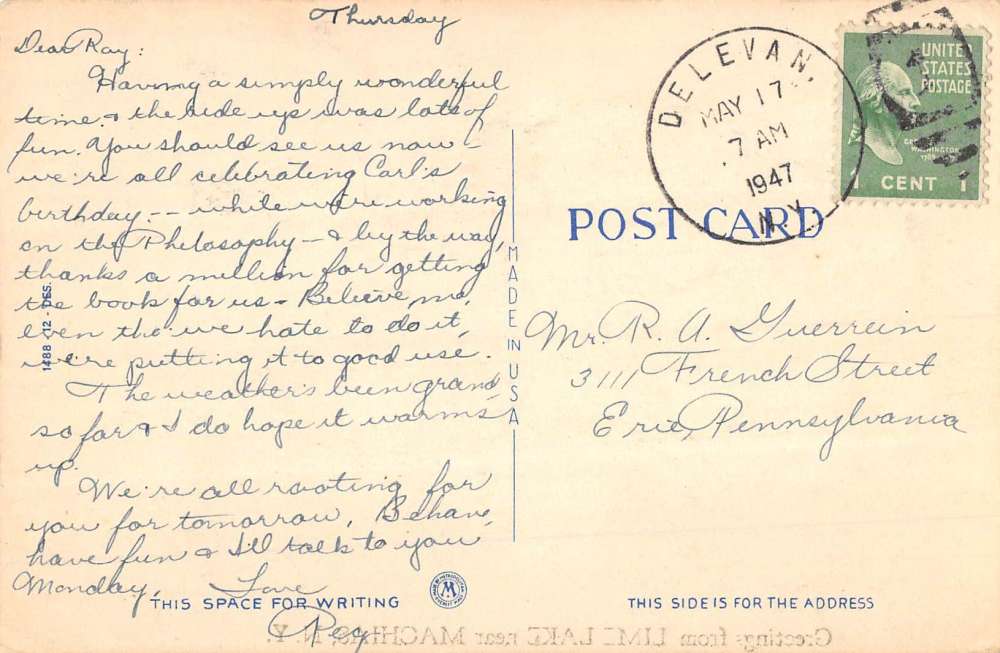 Thursday
Dear Ray:
Having a simply wonderful
time & the ride up was lots of
fun. You should see us now -
we're all celebrating Carl's
birthday. -- while we're working
on the Philosophy - & by the way,
thanks a million for getting
the book for us - Believe me,
even tho' we hate to do it,
we're putting it to good use.
The weather's been grand
so far & I do hope it warms
up.
We're all rooting for
you for tomorrow. Behave,
have fun & I'll talk to you
Monday.
Love
Peg
1488 - 12 - DES.
THIS SPACE FOR WRITING
MADE IN USA
DELEVAN,
MAY 17
7 AM
1947
N.Y.
UNITED
STATES
POSTAGE
WASHINGTON
1 CENT 1
POST CARD
Mr. R. A. Guerrein
3111 French Street
Erie, Pennsylvania
M
THIS SIDE IS FOR THE ADDRESS
Greetings from LIME LAKE near MACHIAS, N. Y.